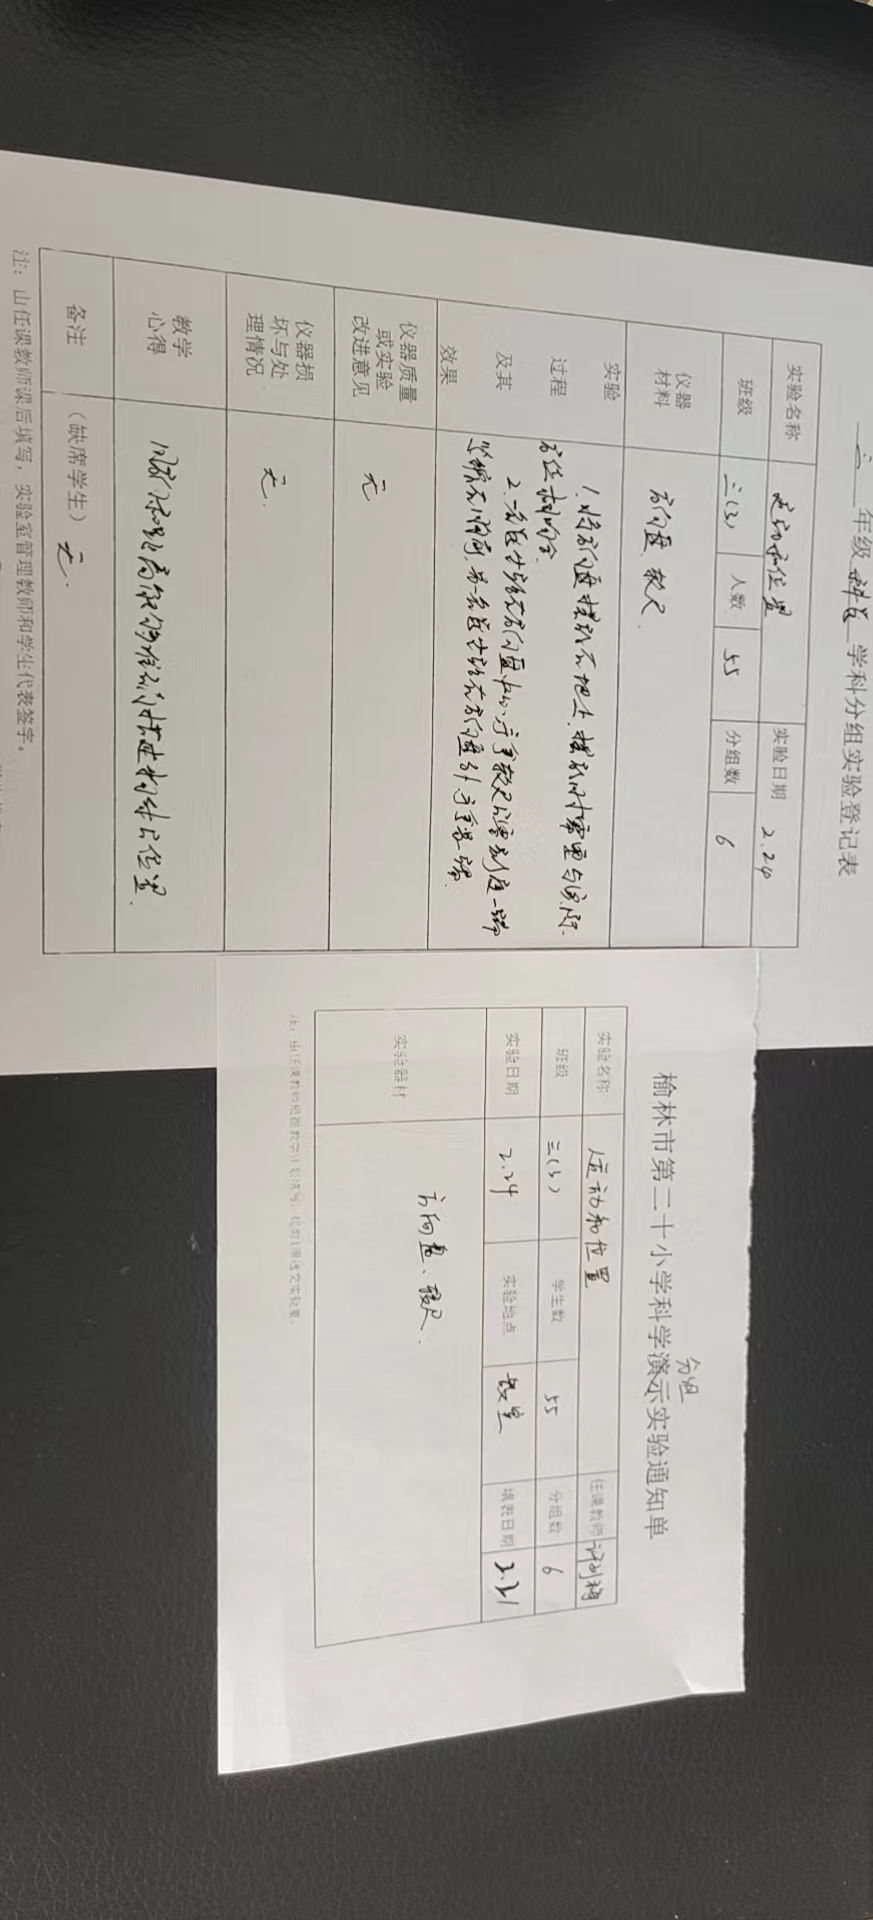 三 年级 科学 学科分组实验登记表
实验名称 运动和位置 实验日期 2.24
班级 三(3) 人数 55 分组数 6
仪器材料 方向盘、软尺.
实验过程及其效果
1. 将方向盘摆放在地上, 摆放时需要与实际
方位相吻合.
2. 一名学生站在方向盘中心, 手拿软尺 零刻度一端
另一名学生站在方向盘外, 手拿另一端.
仪器质量或实验改进意见 无
仪器损坏与处理情况 无.
教学心得 用方向和距离能够准确描述物体的位置.
备注 (缺席学生) 无.
注：由任课教师课后填写，实验室管理教师和学生代表签字。
榆林市第二十小学科学演示实验通知单
分组
实验名称 运动和位置 任课教师
班级 三(3) 学生数 55 分组数 6
实验日期 2.24 实验地点 教室 填表日期 2.21
实验器材 方向盘、软尺.
注：由任课教师根据教学计划填写，提前1周送交实验室。